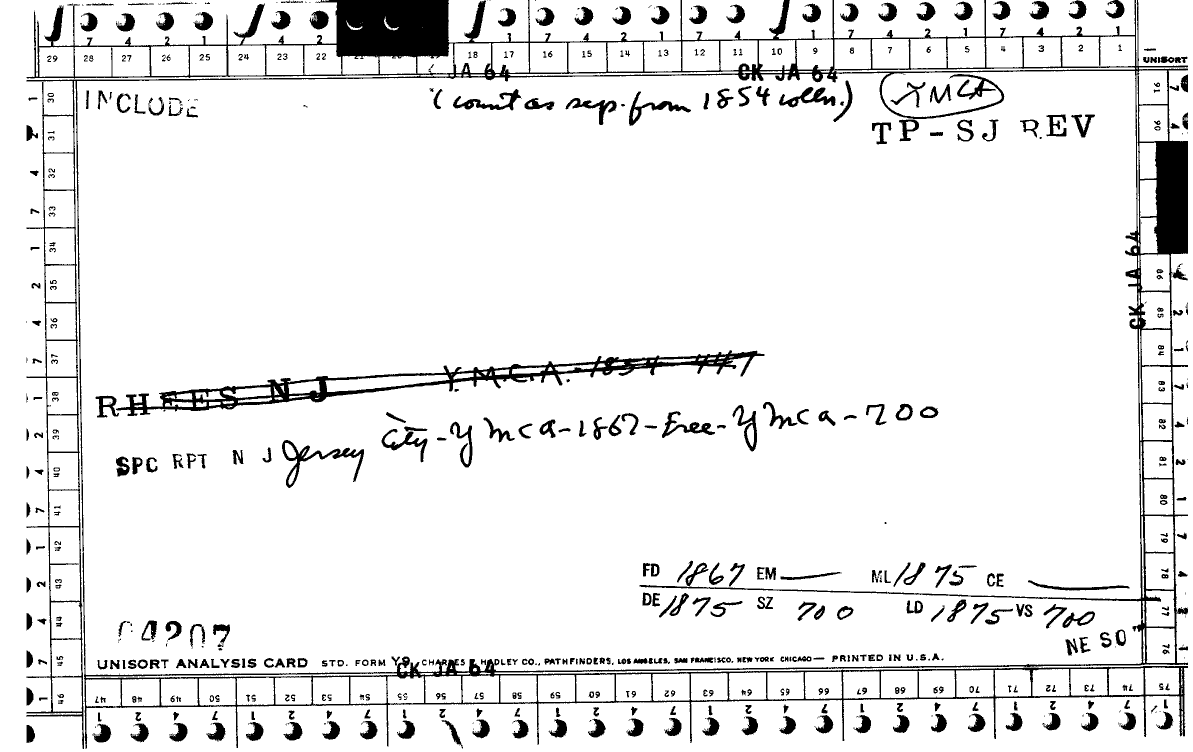 29 28 27 26 25 24 23 22 18 17 16 15 14 13 12 11 10 9 8 7 6 5 4 3 2 1
UNISORT
JA 64 CK JA 64
INCLUDE (count as sep. from 1854 colln.) YMCA
TP-SJ REV
CK JA 64
RHEES NJ Y.M.C.A. - 1854 447
SPC RPT N J Jersey City - YMCA - 1867 - Free - YMCA - 700
FD 1867 EM — ML 1875 CE —
DE 1875 SZ 700 LD 1875 VS 700
NE SO
04207
UNISORT ANALYSIS CARD STD. FORM Y9 CHARLES R. HADLEY CO., PATHFINDERS, LOS ANGELES, SAN FRANCISCO, NEW YORK CHICAGO — PRINTED IN U.S.A.
CK JA 64
47 48 49 50 51 52 53 54 55 56 57 58 59 60 61 62 63 64 65 66 67 68 69 70 71 72 73 74 75